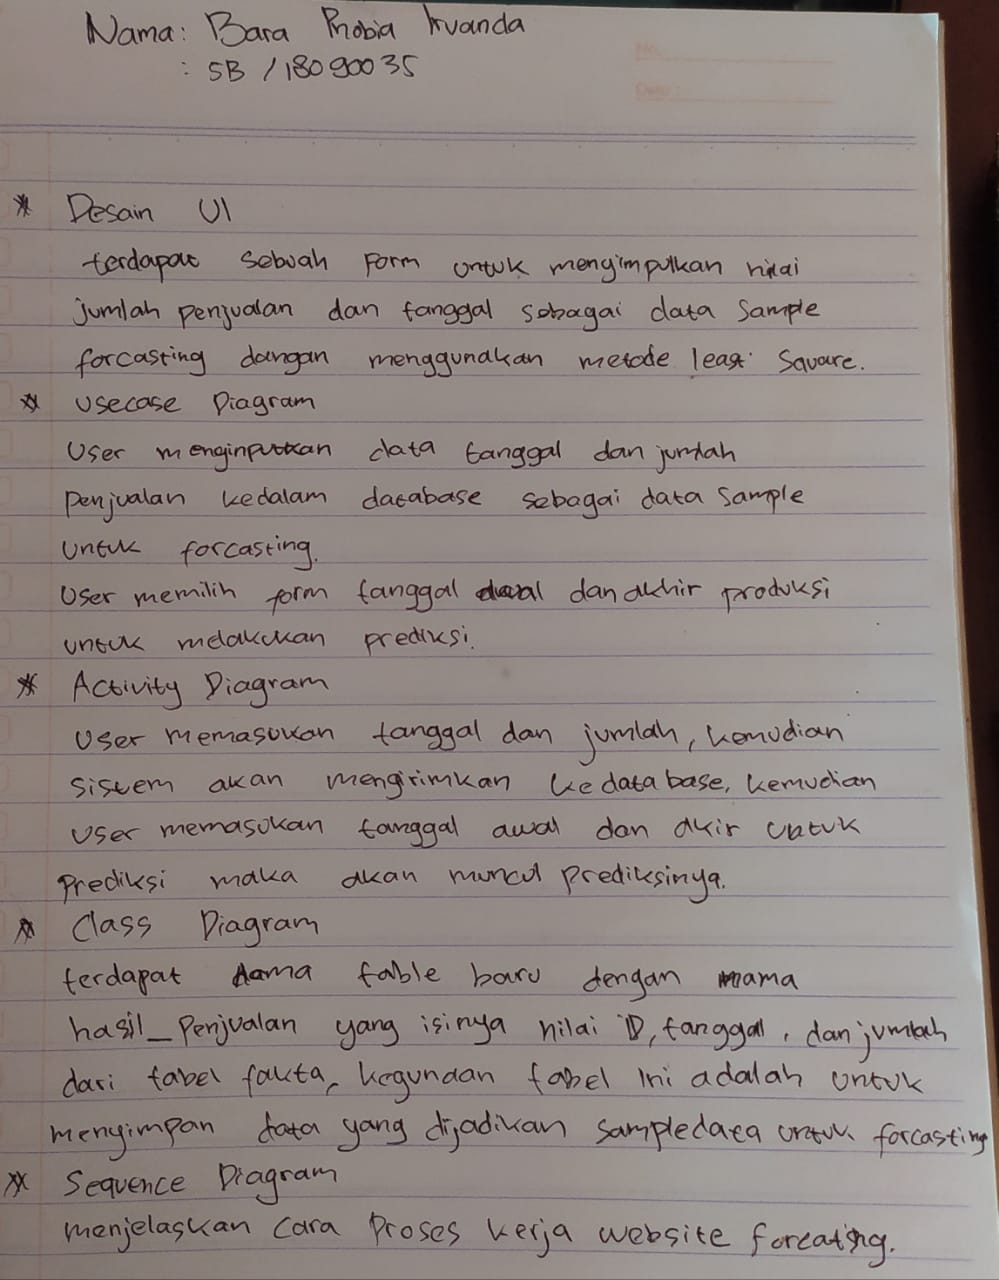 Nama: Bara Phobia Irvanda
: 5B / 18090035
No.
Date:
* Desain UI
terdapat sebuah form untuk mengimpulkan nilai
jumlah penjualan dan tanggal sebagai data Sample
forcasting dangan menggunakan metode least Square.
* Usecase Diagram
User menginputkan data tanggal dan jumlah
penjualan kedalam database sebagai data Sample
untuk forcasting.
User memilih form tanggal awal dan akhir produksi
untuk melakukan prediksi.
* Activity Diagram
User memasukan tanggal dan jumlah, kemudian
Sistem akan mengirimkan ke database, kemudian
User memasukan tanggal awal dan akir untuk
Prediksi maka akan muncul prediksinya.
* Class Diagram
terdapat table baru dengan nama
hasil_Penjualan yang isinya nilai ID, tanggal, dan jumlah
dari tabel fakta, kegunaan tabel ini adalah untuk
menyimpan data yang dijadikan sampledata untuk forcasting
* Sequence Diagram
menjelaskan cara Proses kerja website forcating.